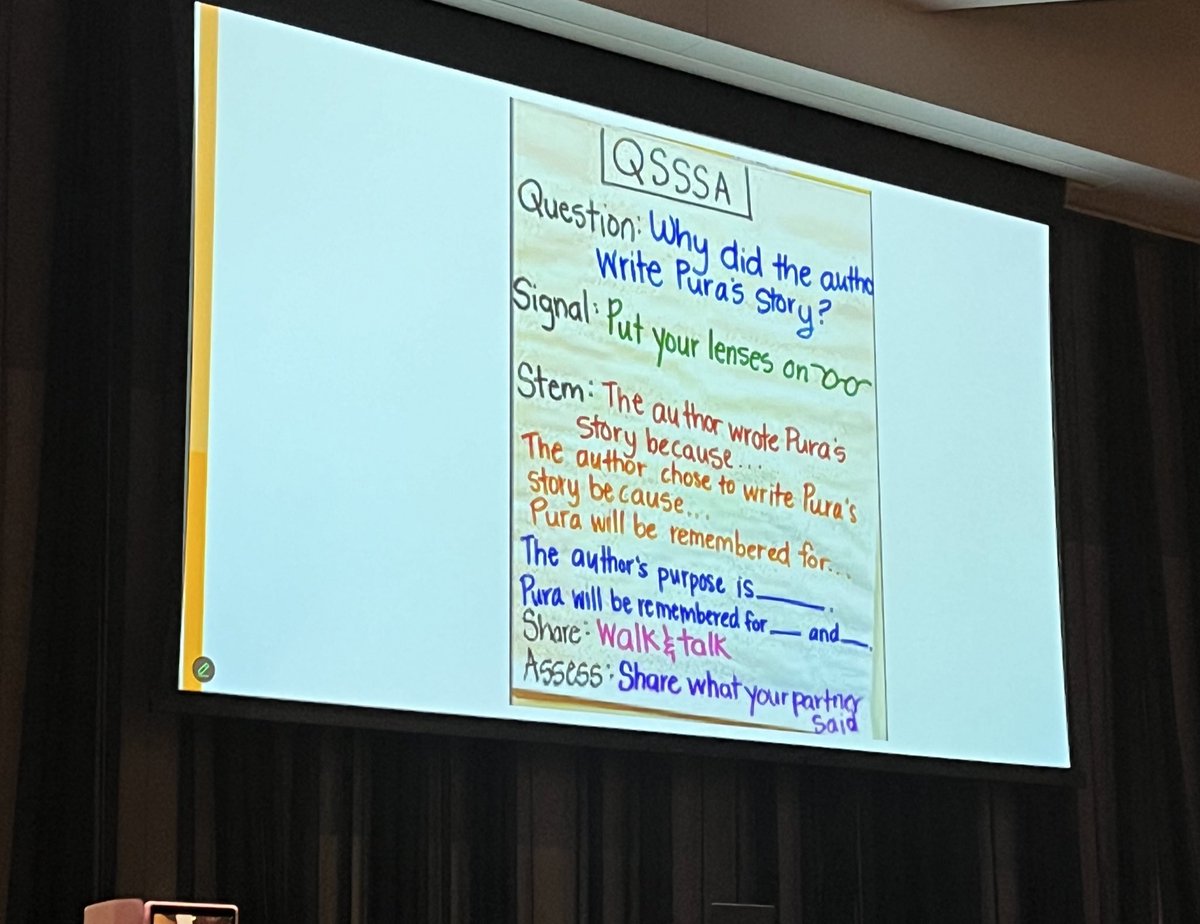 QSSSA
Question: Why did the autho
Write Pura's Story?
Signal: Put your lenses on
Stem: The author wrote Pura's
story because...
The author chose to write Pura's
story because...
Pura will be remembered for...
The author's purpose is______.
Pura will be remembered for___ and___.
Share: Walk & talk
Assess: Share what your partner
said